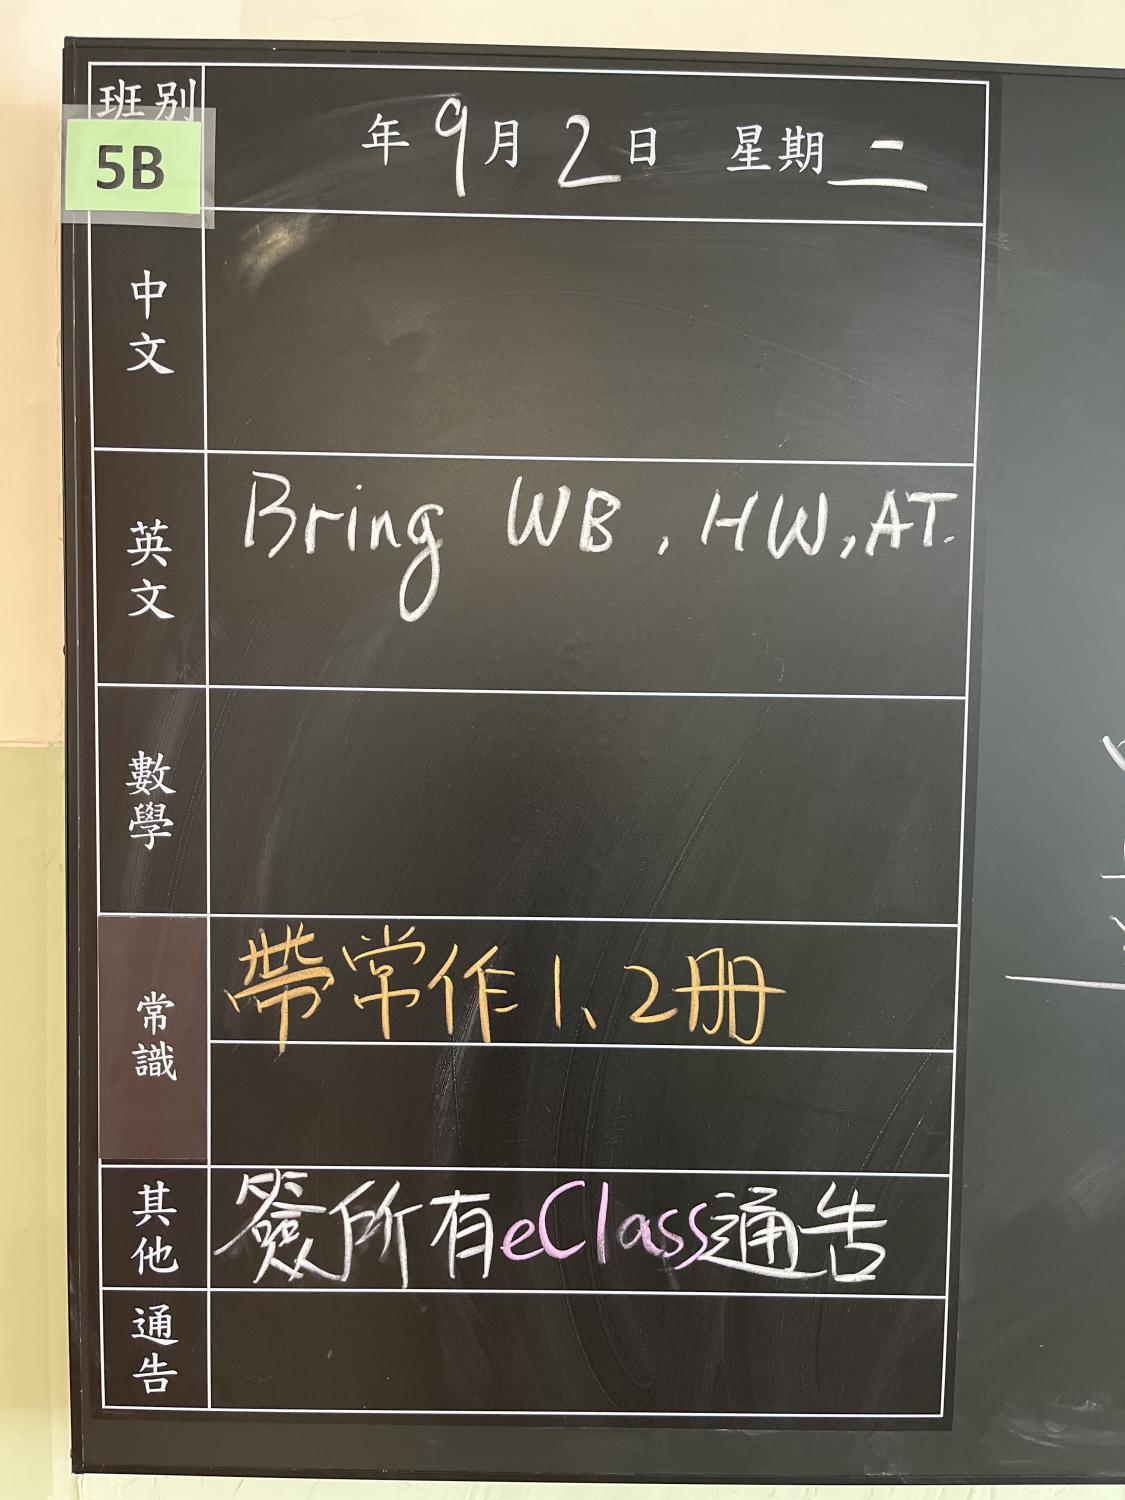 班別
5B
年9月2日 星期二
中文
英文
Bring WB, HW, AT.
數學
常識
帶常作1、2冊
其他
簽所有eClass通告
通告